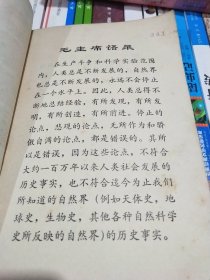 毛主席语录
在生产斗争和科学实验范围
内，人类总是不断发展的，自然界
也总是不断发展的，永远不会停止
在一个水平上。因此，人类总得不
断地总结经验，有所发现，有所发
明，有所创造，有所前进。停止的
论点，悲观的论点，无所作为和骄
傲自满的论点，都是错误的。其所
以是错误，因为这些论点，不符合
大约一百万年以来人类社会发展的
历史事实，也不符合迄今为止我们
所知道的自然界（例如天体史，地
球史，生物史，其他各种自然科学
史所反映的自然界）的历史事实。